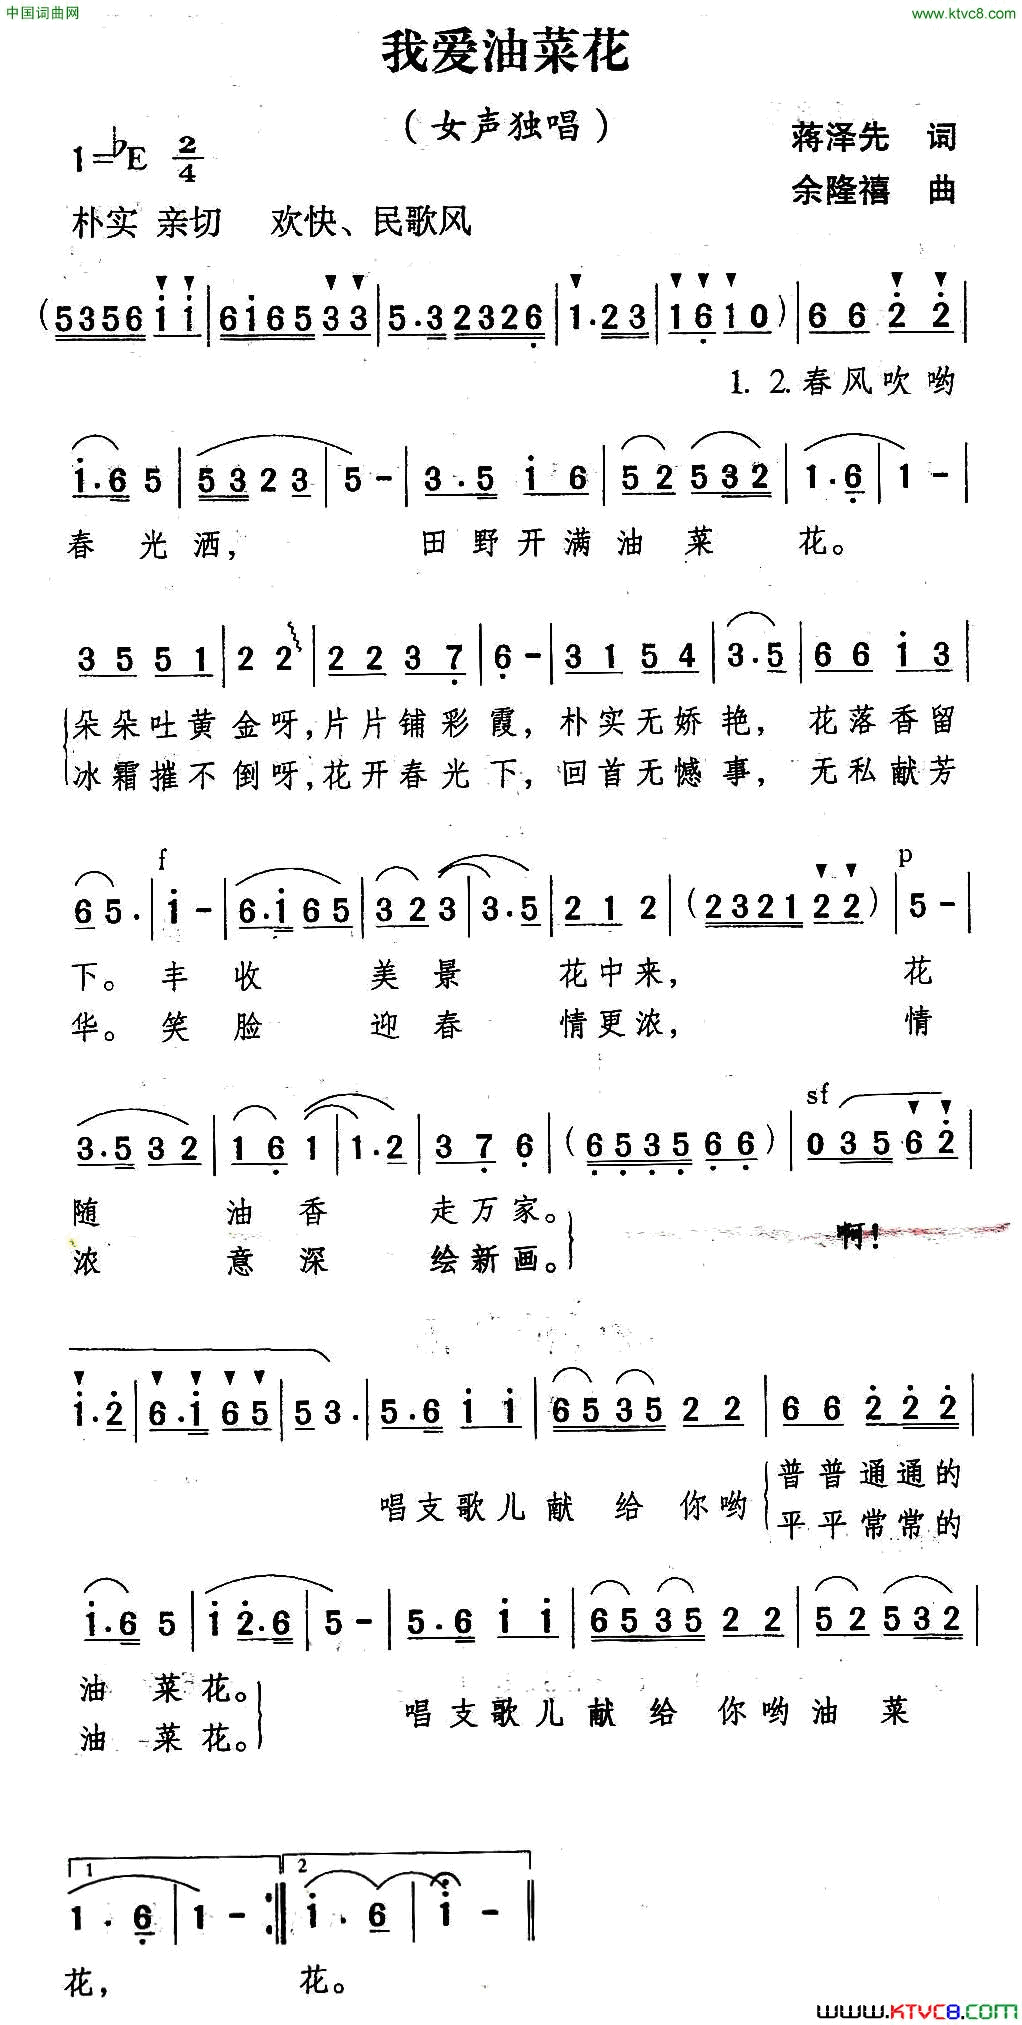 中国词曲网
www.ktvc8.com
我爱油菜花
（女声独唱）
1=♭E 2/4
蒋泽先 词
余隆禧 曲
朴实 亲切 欢快、民歌风
(5356 i i | 6i65 3 3 | 5.3 2326 | 1.23 | 1610) | 66 2 2 |
1. 2. 春风吹哟
i.6 5 | 5323 | 5- | 3.5 i6 | 52 532 | 1.6 | 1- |
春光洒， 田野开满油菜 花。
35 51 | 2 2 | 22 37 | 6- | 31 54 | 3.5 | 66 i3 |
朵朵吐黄金呀,片片铺彩霞，朴实无娇艳，花落香留
冰霜摧不倒呀,花开春光下，回首无憾事，无私献芳
f p
65. | i- | 6.i 65 | 323 | 3.5 | 21 2 | (2321 22) | 5- |
下。丰收 美景 花中来， 花
华。笑脸 迎春 情更浓， 情
sf
3.5 32 | 16 1 | 1.2 | 37 6 | (6535 66) | 0356 2 |
随 油香 走万家。
啊！
浓 意深 绘新画。
i.2 | 6.i 65 | 53. | 5.6 i i | 6535 22 | 66 222 |
普普通通的
唱支歌儿献给你哟
平平常常的
i.6 5 | i 2.6 | 5- | 5.6 i i | 6535 22 | 52 532 |
油菜花。
唱支歌儿献给你哟油菜
油菜花。
1 2
1.6 | 1- :‖ i.6 | i- ‖
花， 花。
www.KTVC8.COM